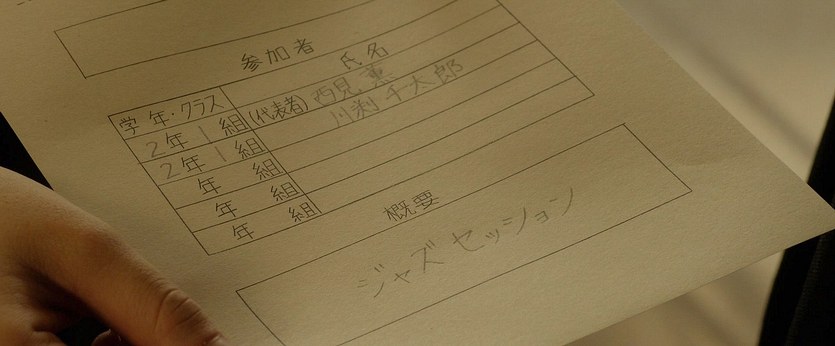 参加者
学年・クラス 氏名
2年1組 (代表者) 西見薫
2年1組 川渕千太郎
年 組
年 組
年 組
概要
ジャズセッション